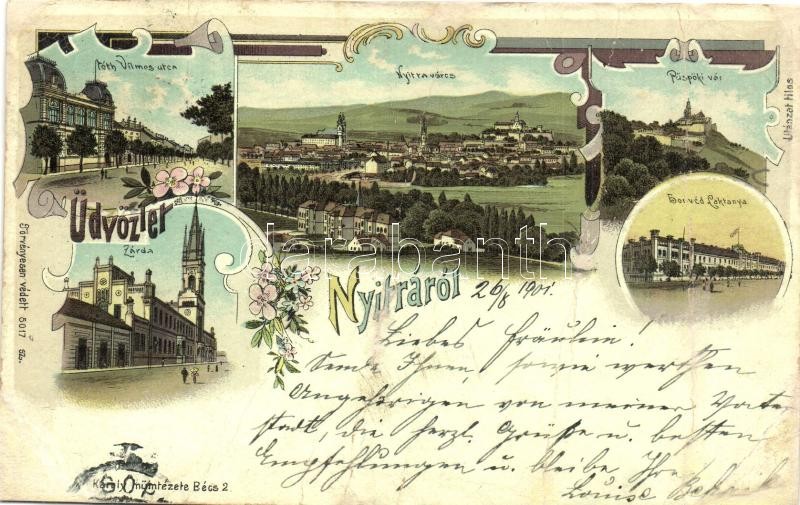 Tóth Vilmos utca
Nyitra város
Püspöki vár
Utánzat tilos
Üdvözlet
Zárda
Honvéd Laktanya
Törvényesen védett 5017 sz.
Nyitráról
26/8 1901.
Liebes Fräulein!
Sende Ihnen, sowie werthen
Angehörigen von meiner Vater
stadt, die herzl. Grüße u. besten
Empfehlungen u. bleibe Ihre
Louise
Károly műintézete Bécs 2
darabanth
.com